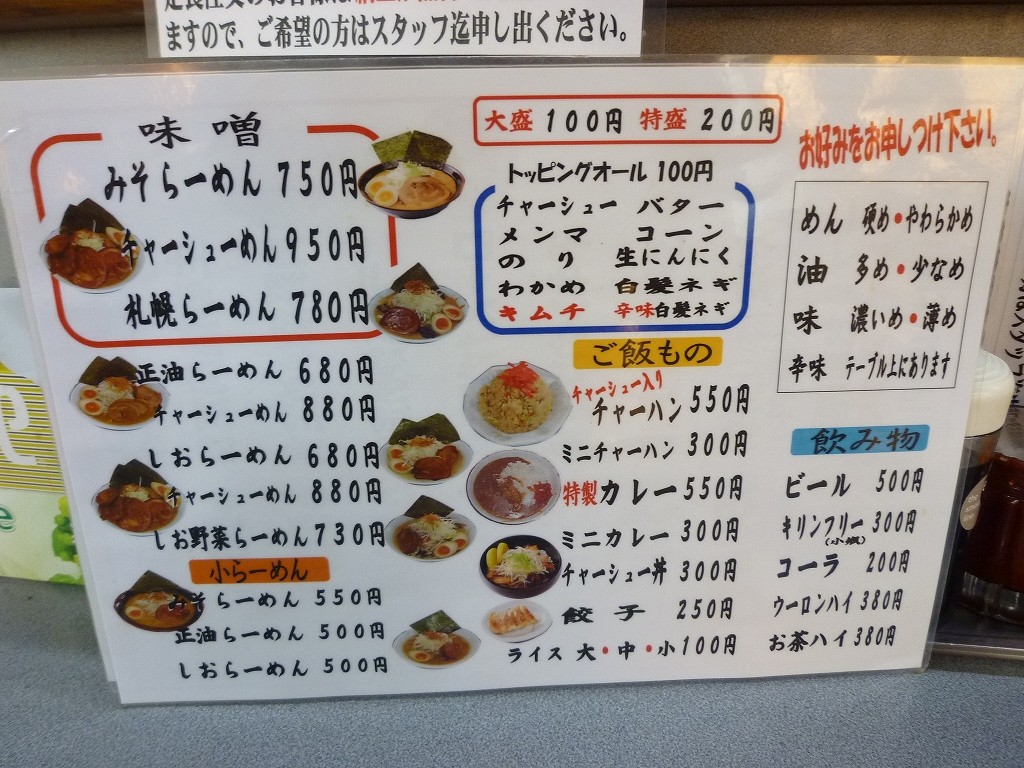 ますので、ご希望の方はスタッフ迄申し出ください。
味噌
みそらーめん 750円
チャーシューめん 950円
札幌らーめん 780円
正油らーめん 680円
チャーシューめん 880円
しおらーめん 680円
チャーシューめん 880円
しお野菜らーめん 730円
小らーめん
みそらーめん 550円
正油らーめん 500円
しおらーめん 500円
大盛 100円 特盛 200円
トッピングオール 100円
チャーシュー バター
メンマ コーン
のり 生にんにく
わかめ 白髪ネギ
キムチ 辛味白髪ネギ
ご飯もの
チャーシュー入り
チャーハン 550円
ミニチャーハン 300円
特製カレー 550円
ミニカレー 300円
チャーシュー丼 300円
餃子 250円
ライス 大・中・小 100円
お好みをお申しつけ下さい。
めん 硬め・やわらかめ
油 多め・少なめ
味 濃いめ・薄め
辛味 テーブル上にあります
飲み物
ビール 500円
キリンフリー 300円
(小瓶)
コーラ 200円
ウーロンハイ 380円
お茶ハイ 380円